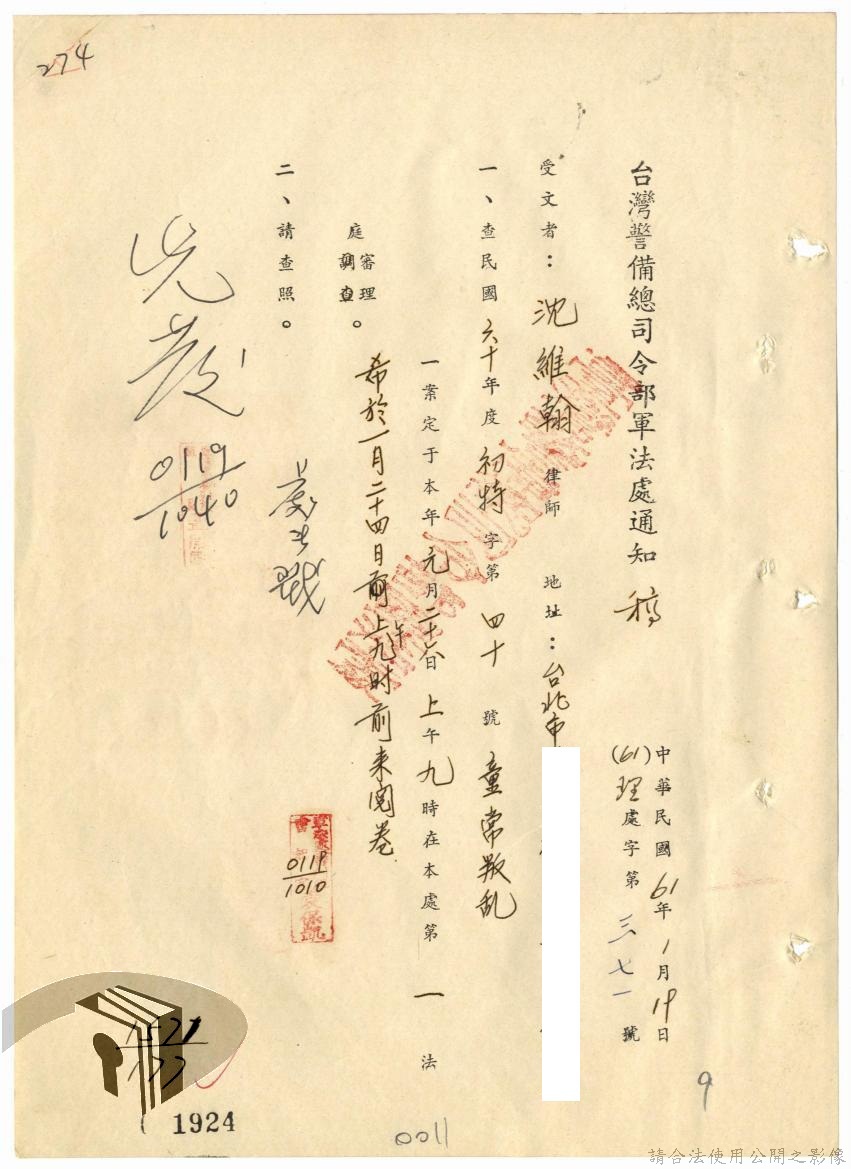 274
台灣警備總司令部軍法處通知 稿
中華民國61年1月19日
(61)理處字第三七一號
受文者：沈維翰律師 地址：台北市
一、查民國六十年度初特字第四十號童常叛乱
一案定于本年元月二十八日上午九時在本處第一法
庭審理調查。
希於一月二十四日前上午九时前来閱卷
二、請查照。
先發
0119
1040
0119
1010
1924
0011
9
請合法使用公開之影像